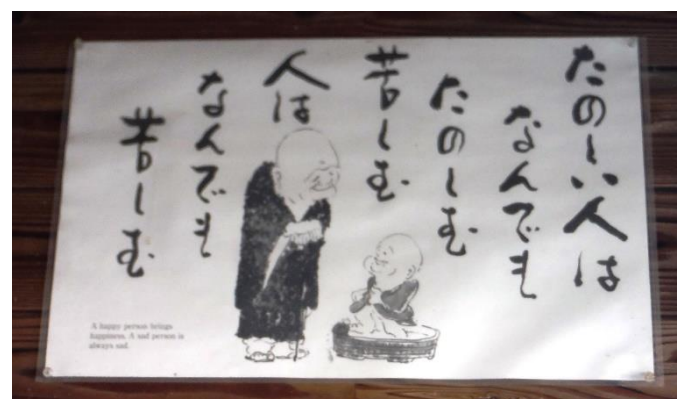 たのしい人は
なんでも
たのしむ
苦しむ
人は
なんでも
苦しむ
A happy person brings
happiness. A sad person is
always sad.